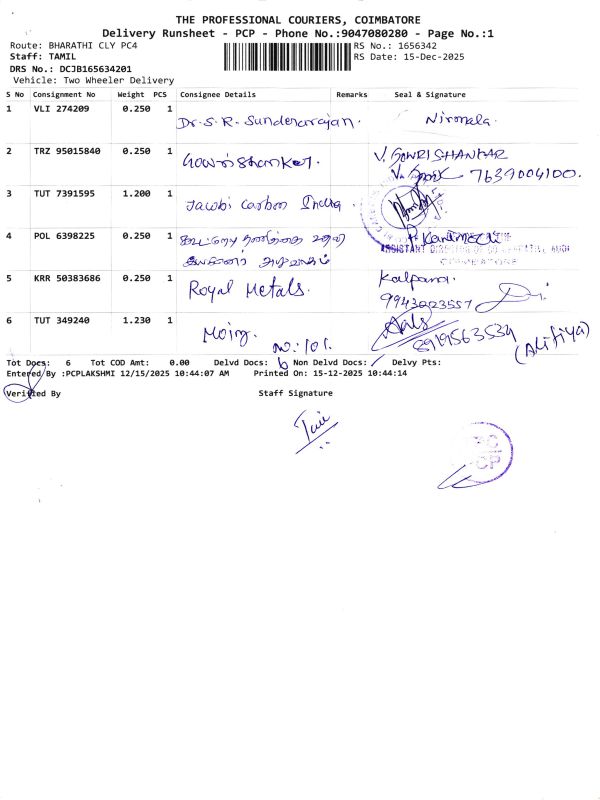 THE PROFESSIONAL COURIERS, COIMBATORE
Delivery Runsheet - PCP - Phone No.:9047080280 - Page No.:1
Route: BHARATHI CLY PC4 RS No.: 1656342
Staff: TAMIL RS Date: 15-Dec-2025
DRS No.: DCJB165634201
Vehicle: Two Wheeler Delivery
S No Consignment No Weight PCS Consignee Details Remarks Seal & Signature
1 VLI 274209 0.250 1 Dr. S. R. Sunderarajan. Nirmala.
2 TRZ 95015840 0.250 1 Gowri Shankar. V. GOWRI SHANKAR
7639004100.
3 TUT 7391595 1.200 1 Jacobi Carbon India.
4 POL 6398225 0.250 1 கூட்டுறவு தணிக்கை உதவி
ASSISTANT DIRECTOR OF CO-OPERATIVE AUDIT
COIMBATORE
5 KRR 50383686 0.250 1 Royal Metals. Kalpana.
9943023557
6 TUT 349240 1.230 1 Moiz. 8919563534
(Alifiya)
Tot Docs: 6 Tot COD Amt: 0.00 Delvd Docs: 6 Non Delvd Docs: Delvy Pts:
Entered By :PCPLAKSHMI 12/15/2025 10:44:07 AM Printed On: 15-12-2025 10:44:14
Verified By Staff Signature
PCP